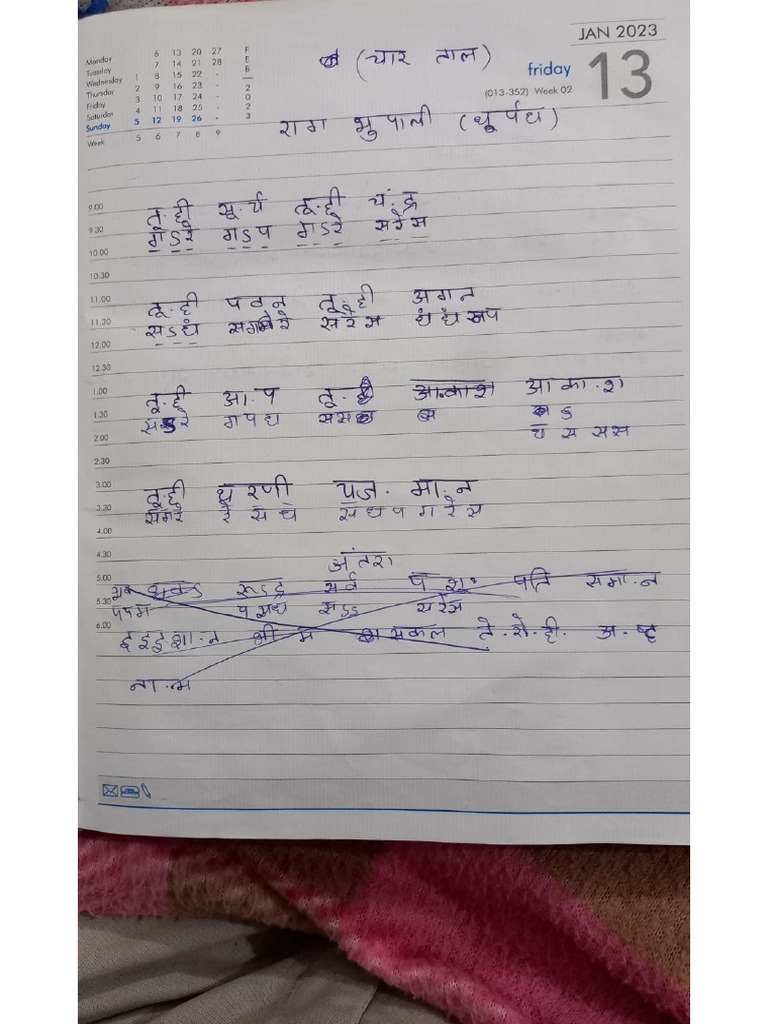 JAN 2023
friday 13
(013-352) Week 02
Monday 6 13 20 27 F
Tuesday 7 14 21 28 E
Wednesday 1 8 15 22 - B
Thursday 2 9 16 23 - 2
Friday 3 10 17 24 - 0
Saturday 4 11 18 25 - 2
Sunday 5 12 19 26 - 3
Week 5 6 7 8 9
(चार ताल)
राग भुपाली (धूर्पद)
9.00 तू.ही सू.र्य तू.ही चं.द्र
9.30 गSरे गSप गSरे सरेस
10.00
10.30
11.00 तू.ही पवन तू.ही अगन
11.30 सSध सगरे सरेस
12.00
12.30
1.00 तू.ही आ.प तू.ही आकाश आ का.श
1.30 सSरे गपध
2.00 ध स स स
2.30
3.00 तू.ही धरणी यज. मा.न
3.30 सगरे रे स ध स ध प ग रे स
4.00
4.30 अंतरा
5.00 रूSद्र सर्व प शू. पति समा.न
5.30 सरेस
6.00 भी म सकल ते.रो.ही. अ.ष्ट
ना.म